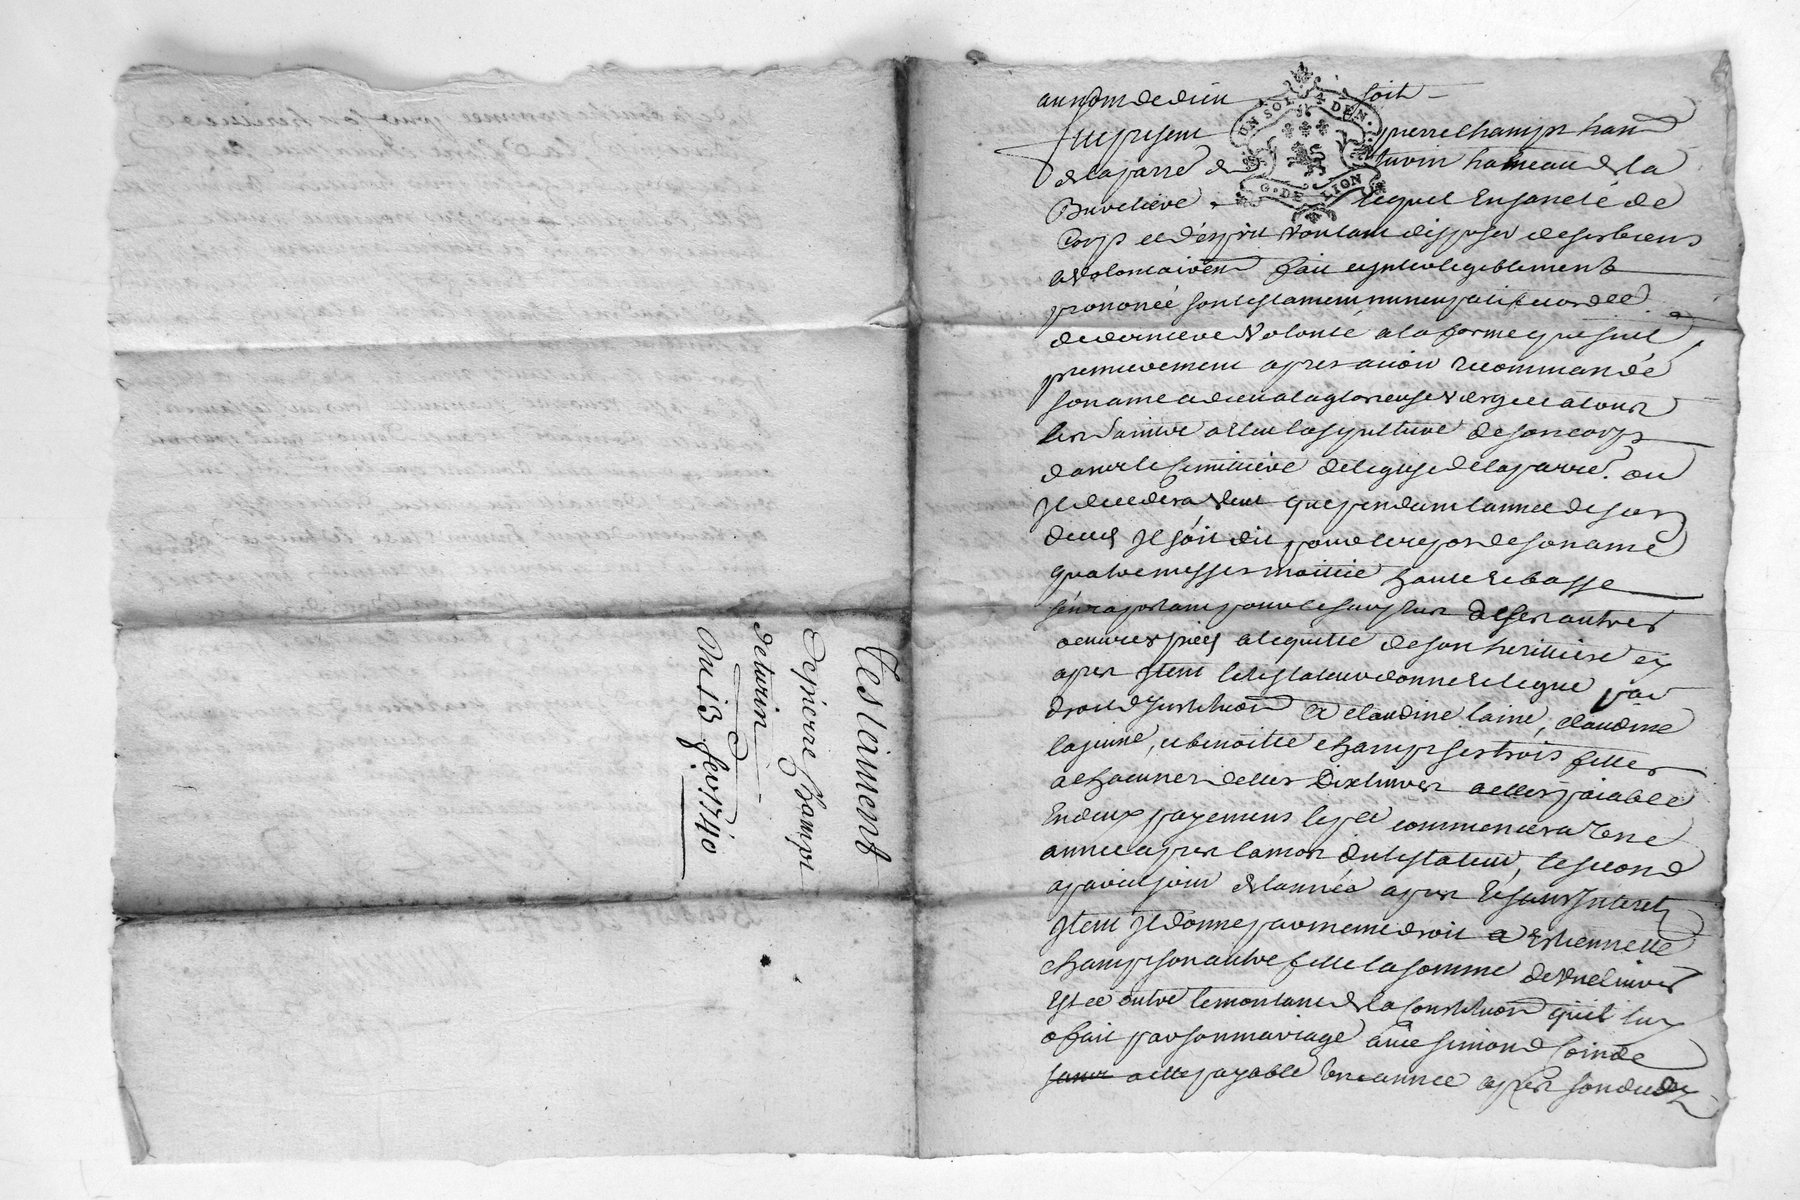 Testament
de pierre Champt
de turin
Du 13 fev. 1740
au nom de dieu soit
UN SOL 4 DEN.
G. DE LION
fut present pierre Champt hand
de la parre de turin hameau de la
Buveliere lequel En santé de
Corps et d'esprit voulant disposer de ses biens
a volontairem fait et intelegiblement
prononcé son testament nuncupatif et ordce
de derniere volonté a la forme que suit
premierement apres avoir recommandé
son ame a dieu a la glorieuse vierge et a tous
les saints a Elu la sepulture de son corps
dans le Cemittiere de leglise de la parre ou
Il decedera veut que pendant lannee de son
deces Il soit dit pour le repos de son ame
quatre messes moitié haute et basse
s'en raportant pour le surplus de ses autres
oeuvres pies a lequitté de son heritiere cy
apres Item le testateur donne et legue par
droit d'Institution a claudine lainé, claudine
la jeune, et benoitte champt ses trois filles
a chacunes delles Dix livres a elles paiable
En deux payemens le per commencera Une
annee apres la mort du testateur, le second
a pareil jour de lannéé apres Et sans Interet
Item Il donne par meme droit a Estiennette
champt son autre fille la somme de Une livres
Et ce outre le montant de la Constitution quil luy
a fait par son mariage avec Simond
a elle payable Une annee apres son deces